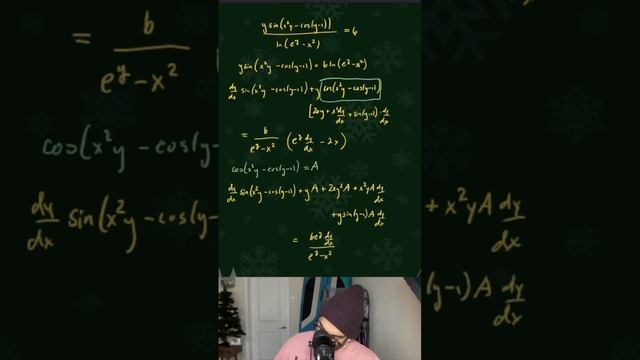 y sin(x²y - cos(y-1)) / ln(e^y - x²) = 6
y sin(x²y - cos(y-1)) = 6 ln(e^y - x²)
dy/dx sin(x²y - cos(y-1)) + y cos(x²y - cos(y-1))
[2xy + x² dy/dx + sin(y-1) · dy/dx
= 6/(e^y - x²) (e^y dy/dx - 2x)
cos(x²y - cos(y-1)) = A
dy/dx sin(x²y - cos(y-1)) + yA + 2xy²A + x²yA dy/dx
+ y sin(y-1) A dy/dx
= 6e^y dy/dx / (e^y - x²)
= 6/(e^y - x²)
cos(x²y - cos(y-1)
dy/dx sin(x²y - cos(y
+ x²yA dy/dx
(y-1) A dy/dx